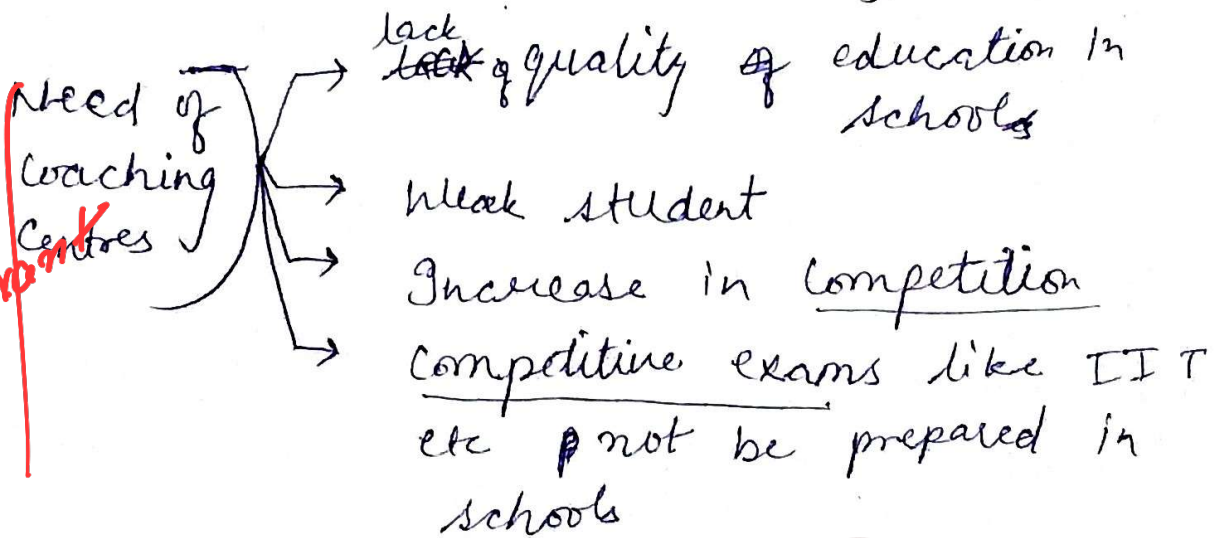 Need of
Coaching
Centres
lack of quality of education in
schools
Weak student
Increase in competition
Competitive exams like IIT
etc not be prepared in
schools